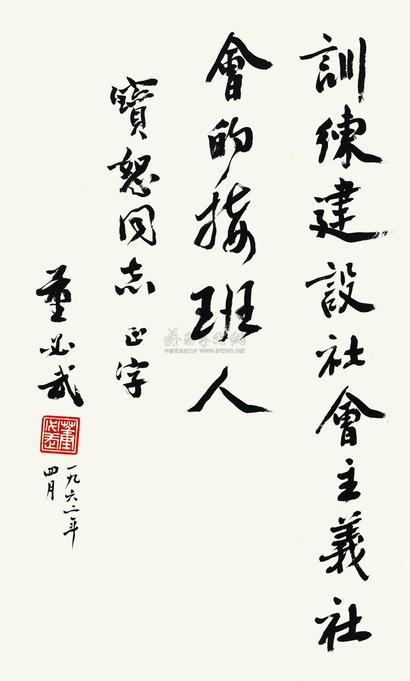 訓練建設社會主義社
會的接班人
寶恕同志 正字
董必武
董必武
一九六二年
四月
www.artron.net